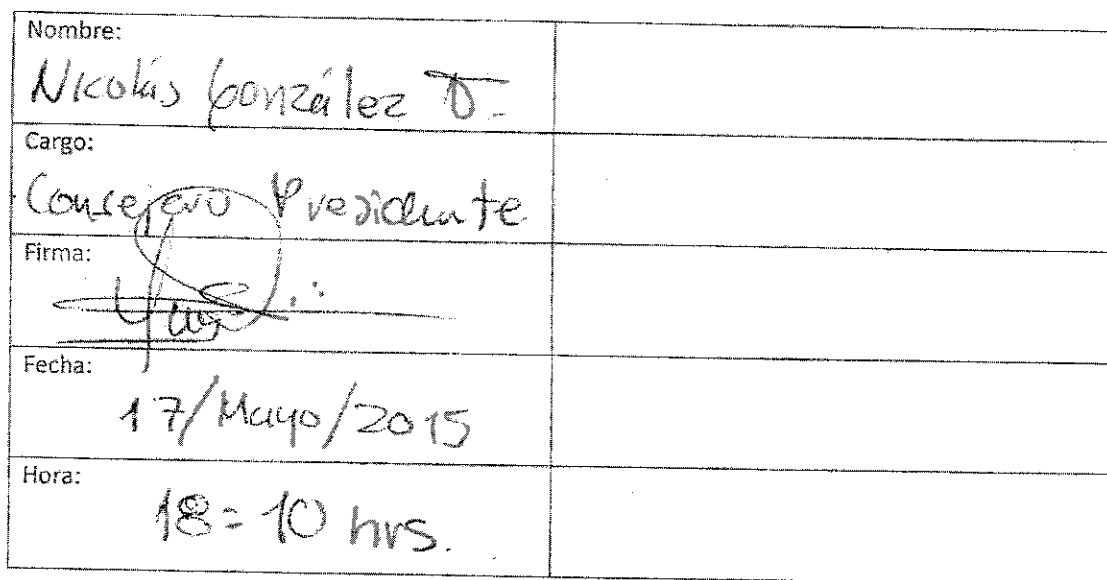 Nombre:
Nicolás González D.
Cargo:
Consejero Presidente
Firma:
Fecha:
17/Mayo/2015
Hora:
18:10 hrs.